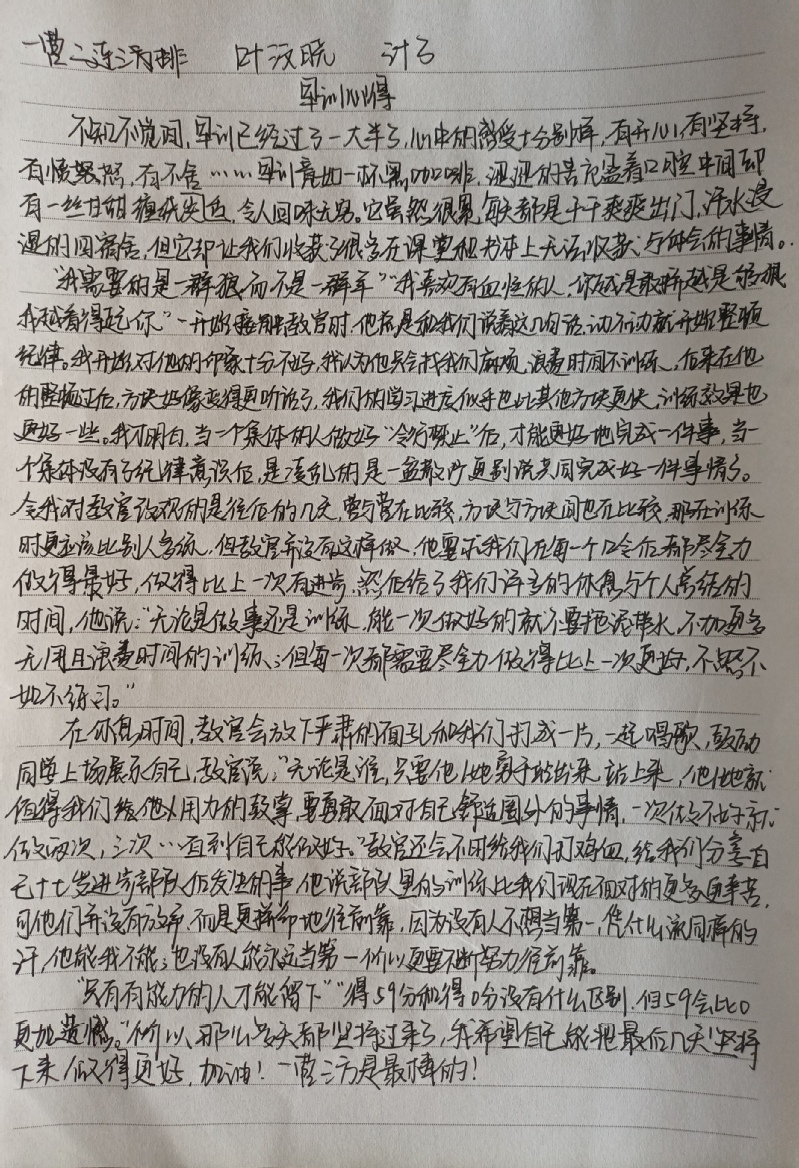 一营二连三方排 叶汶晓 计
军训心得
不知不觉间,军训已经过了一大半了,心中的感受十分别样,有开心,有坚持,
有愤怒,有不舍……军训竟如一杯黑咖啡,涩涩的苦充盈着口腔中间却
有一丝甘甜缠绕突出,令人回味无穷。它虽然很累,每天都是干干爽爽出门,汗水浸
湿的回宿舍,但它却让我们收获了很多在课堂和书本上无法收获与体会的事情。
“我需要的是一群狼而不是一群羊”“我喜欢有血性的人,你越是骄越是狠
我越看得起你”一开始接触教官时,他总是和我们说着这几句话,动不动就开始整顿
纪律。我开始对他的印象十分不好,我认为他只会找我们麻烦,浪费时间不训练,后来在他
的整顿过后,方块好像变得更听话了,我们的学习进度似乎也比其他方块更快,训练效果也
更好一些。我才明白,当一个集体的人做好“令行禁止”后,才能更好地完成一件事,当一
个集体没有了纪律意识后,是凌乱的是一盘散沙更别说共同完成好一件事情了。
令我对教官改观的是往后的几天,营与营在比较,方块与方块间也在比较,那在训练
时更应该比别人多练,但教官并没有这样做,他要求我们在每一个口令后都尽全力
做得最好,做得比上一次有进步,然后给了我们许多的休息与个人总结的
时间,他说:“无论是做事还是训练,能一次做好的就不要拖泥带水,不加更多
无用且浪费时间的训练、;但每一次都需要尽全力做得比上一次更好,不然不
如不练习。”
在休息时间,教官会放下严肃的面孔和我们打成一片,一起唱歌,鼓励
同学上场展示自己,教官说:“无论是谁,只要他/她勇于站出来,站上来,他/她就
值得我们给他以用力的鼓掌,要勇敢面对自己舒适圈外的事情,一次做不好就
做两次,三次…直到自己能做好。”教官还会不时给我们打鸡血,给我们分享自
己十七岁进步部队后发生的事,他说部队里的训练比我们现在面对的更多更辛苦,
可他们并没有放弃,而是更拼命地往前靠,因为没有人不想当第一,凭什么流同样的
汗,他能我不能;也没有人能永远当第一所以更要不断努力往前靠。
“只有有能力的人才能留下”“得59分和得0分没有什么区别,但59会比0
更加遗憾。”所以,那么多天都坚持过来了,我希望自己能把最后几天坚持
下来/做得更好,加油!一营三方是最棒的!